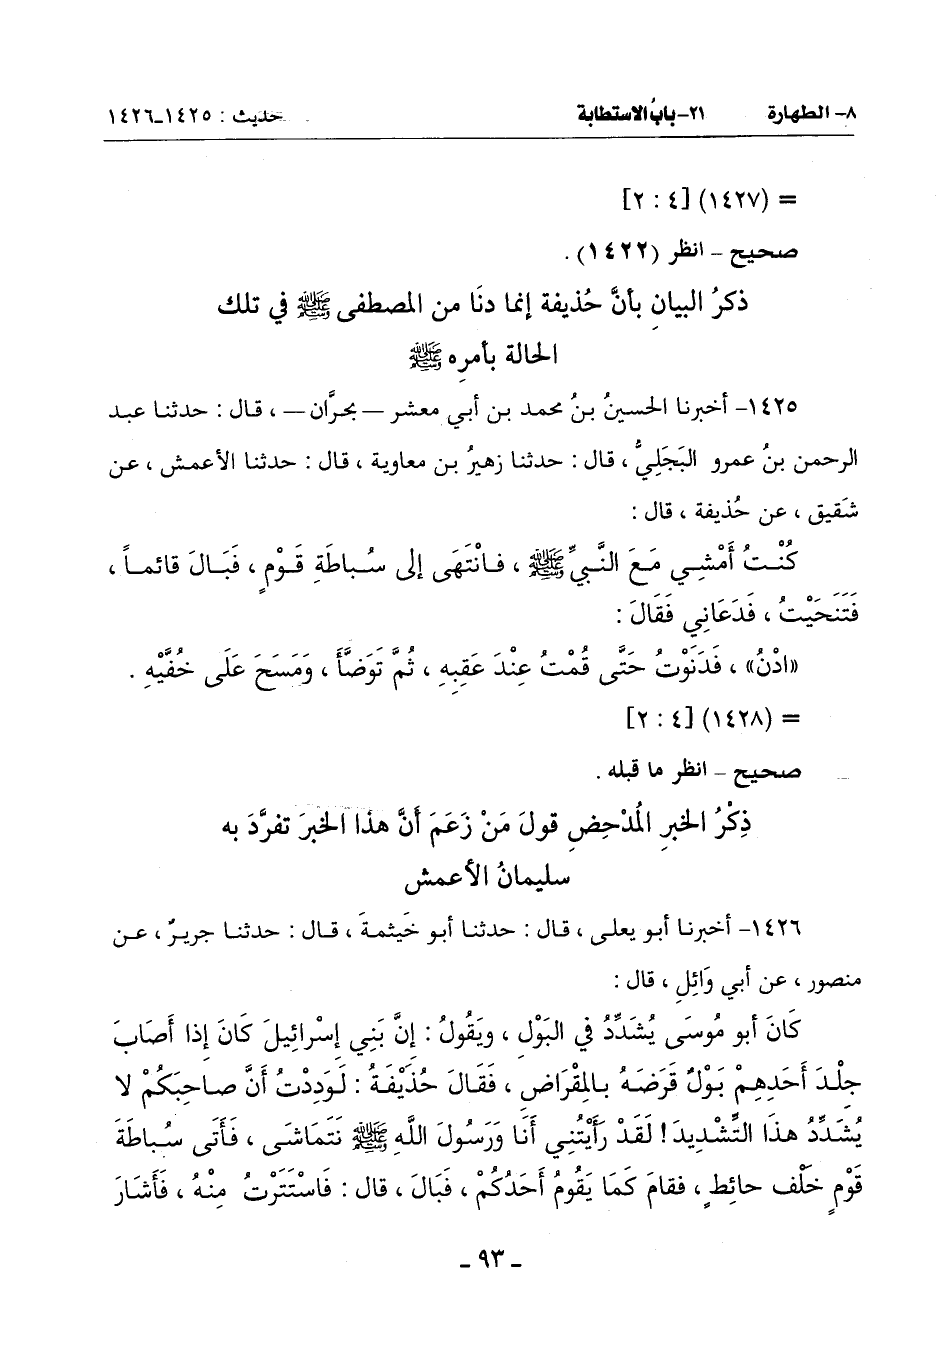 ٨- الطهارة ٢١- بابُ الاستطابة حديث : ١٤٢٥-١٤٢٦
= (١٤٢٧) [٤ : ٢]
صحيح - انظر (١٤٢٢) .
ذكرُ البيانِ بأنَّ حُذيفة إنما دنَا من المصطفى ﷺ في تلك
الحالة بأمرِه ﷺ
١٤٢٥- أخبرنا الحسينُ بنُ محمد بن أبي معشر – بحرَّان – ، قال : حدثنا عبد
الرحمن بنُ عمرو البَجَلِيُّ ، قال : حدثنا زهيرُ بن معاوية ، قال : حدثنا الأعمش ، عن
شَقيق ، عن حُذيفة ، قال :
كُنْتُ أَمْشِي مَعَ النَّبِيِّ ﷺ ، فانْتَهَى إلى سُباطَةِ قَوْمٍ ، فَبَالَ قائماً ،
فَتَنَحَيْتُ ، فَدَعَانِي فَقَالَ :
«ادْنُ» ، فَدَنَوْتُ حَتَّى قُمْتُ عِنْدَ عَقِبِهِ ، ثُمَّ تَوَضَّأَ ، وَمَسَحَ عَلَى خُفَّيْهِ .
= (١٤٢٨) [٤ : ٢]
صحيح - انظر ما قبله .
ذِكْرُ الخبرِ المُدْحِضِ قولَ مَنْ زَعَمَ أَنَّ هذا الخبرَ تفرَّدَ به
سليمانُ الأعمش
١٤٢٦- أخبرنا أبو يعلى ، قال : حدثنا أبو خَيثمةَ ، قال : حدثنا جريرٌ ، عن
منصور ، عن أبي وَائِلٍ ، قال :
كَانَ أبو مُوسَى يُشَدِّدُ في البَوْلِ ، ويَقُولُ : إنَّ بَنِي إسْرائِيلَ كَانَ إذا أَصَابَ
جِلْدَ أَحَدِهِمْ بَوْلٌ قَرَضَهُ بالمِقْرَاضِ ، فَقَالَ حُذَيْفَةُ : لَوَدِدْتُ أَنَّ صاحِبَكُمْ لا
يُشَدِّدُ هذَا التَّشْدِيدَ! لَقَدْ رَأَيْتُنِي أَنَا وَرَسُولَ اللَّهِ ﷺ نَتَمَاشَى ، فَأَتَى سُباطَةَ
قَوْمٍ خَلْفَ حائِطٍ ، فقامَ كَمَا يَقُومُ أَحَدُكُمْ ، فَبَالَ ، قال : فَاسْتَتَرْتُ مِنْهُ ، فَأَشَارَ
- ٩٣ -